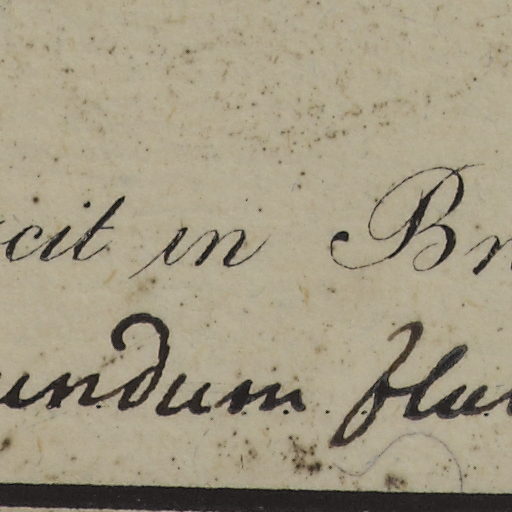 cit in Br
undum flu